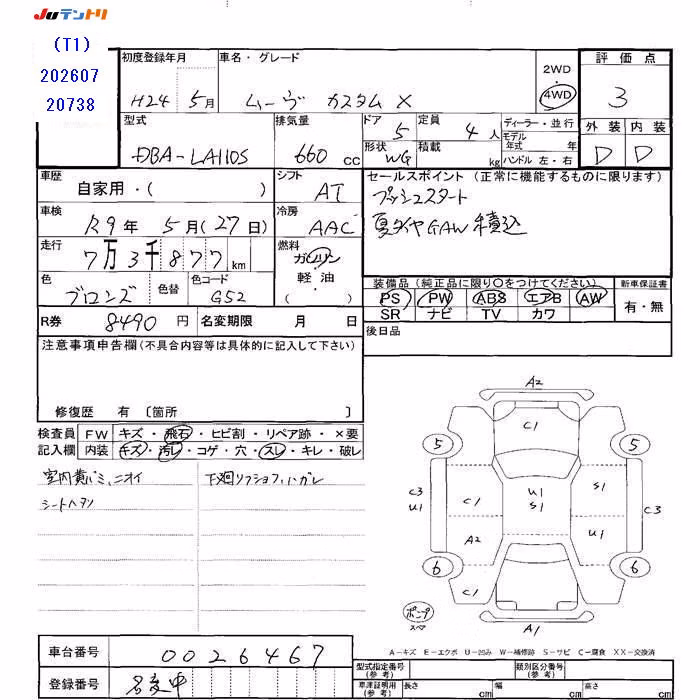 JUテントリ
(T1)
202607
20738
初度登録年月
H24 5月
車名・グレード
ムーヴ カスタム X
2WD
・
4WD
評価点
3
外装 内装
D D
型式
DBA-LA110S
排気量
660 cc
ドア 5
形状 WG
定員 4 人
積載 kg
ディーラー・並行
モデル年式 年
ハンドル 左・右
車歴
自家用・( )
シフト
AT
セールスポイント (正常に機能するものに限ります)
プッシュスタート
夏タイヤGAW積込
車検
R9年 5月(27日)
冷房
AAC
走行
7万3千877km
燃料
ガソリン
軽・油
( )
色
ブロンズ
色替
色コード
G52
装備品 (純正品に限り〇をつけてください)
PS PW ABS エアB AW
SR ナビ TV カワ
新車保証書
有・無
R券 8490 円
名変期限 月 日
後日品
注意事項申告欄(不具合内容等は具体的に記入して下さい)
修復歴 有 〔箇所 〕
検査員記入欄
FW キズ・飛石・ヒビ割・リペア跡・×要
内装 キズ・汚レ・コゲ・穴・スレ・キレ・破レ
下廻リ
シートヘタリ
A2
C1
5 5
C3
U1
C1
U1
S1
S1
C3
A2
U1
6 6
C1
A1
ポンプ
スペア
A-キズ E-エクボ U-凹み W-補修跡 S-サビ C-腐食 XX-交換済
車台番号 0026467
登録番号 名変中
型式指定番号(参考)
類別区分番号(参考)
車庫証明用(参考)
長さ cm 幅 cm 高さ cm